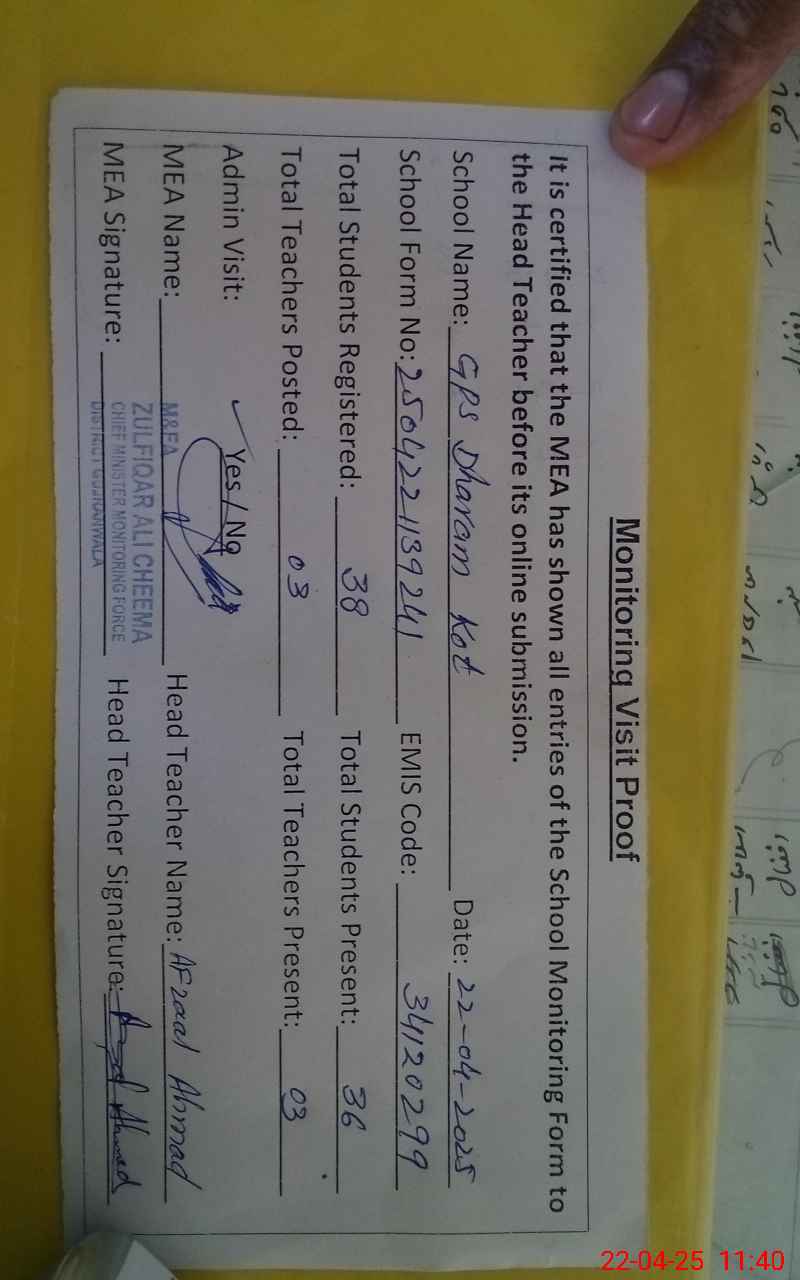 Monitoring Visit Proof
It is certified that the MEA has shown all entries of the School Monitoring Form to
the Head Teacher before its online submission.
School Name: GPS Dharam Kot Date: 22-04-2025
School Form No: 2504221139241 EMIS Code: 34120299
Total Students Registered: 38 Total Students Present: 36
Total Teachers Posted: 03 Total Teachers Present: 03
Admin Visit: ✓ Yes / No
MEA Name: Head Teacher Name: Afzaal Ahmad
M&EA
ZULFIQAR ALI CHEEMA
CHIEF MINISTER MONITORING FORCE
DISTRICT GUJRANWALA
MEA Signature: Head Teacher Signature:
22-04-25 11:40